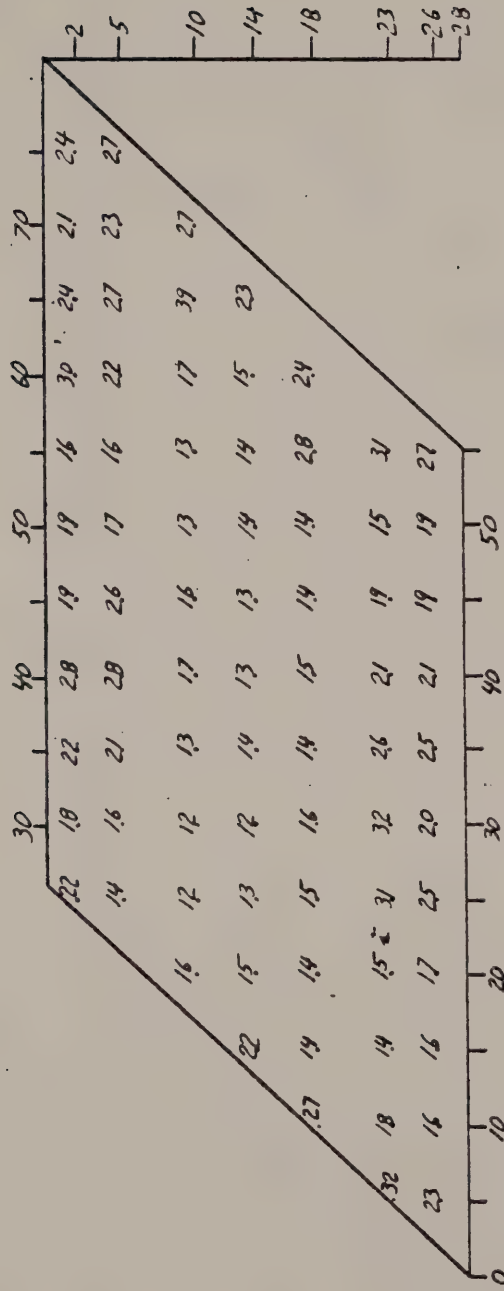 30 40 50 60 70
22 18 22 28 19 19 16 30 24 21 24 2
14 16 21 28 26 17 16 22 27 23 27 5
16 12 12 13 17 16 13 13 17 39 27 10
22 15 13 12 14 13 13 14 14 15 23 14
27 19 14 15 16 14 15 14 14 28 24 18
32 18 14 15 31 32 26 21 19 15 31 23
23 16 16 17 25 20 25 21 19 19 27 26
28
0 10 20 30 40 50